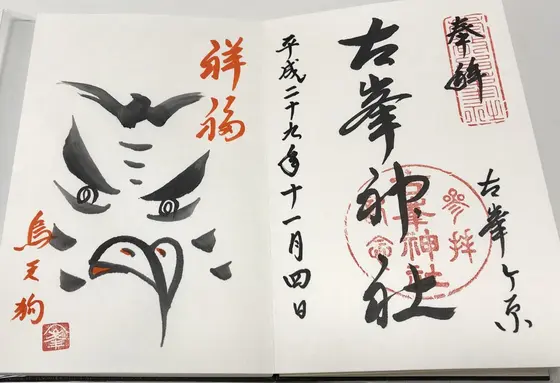 奉拝
古峯ヶ原
古峯神社
参拝
古峯神社
平成二十九年十一月四日
祥福
烏天狗